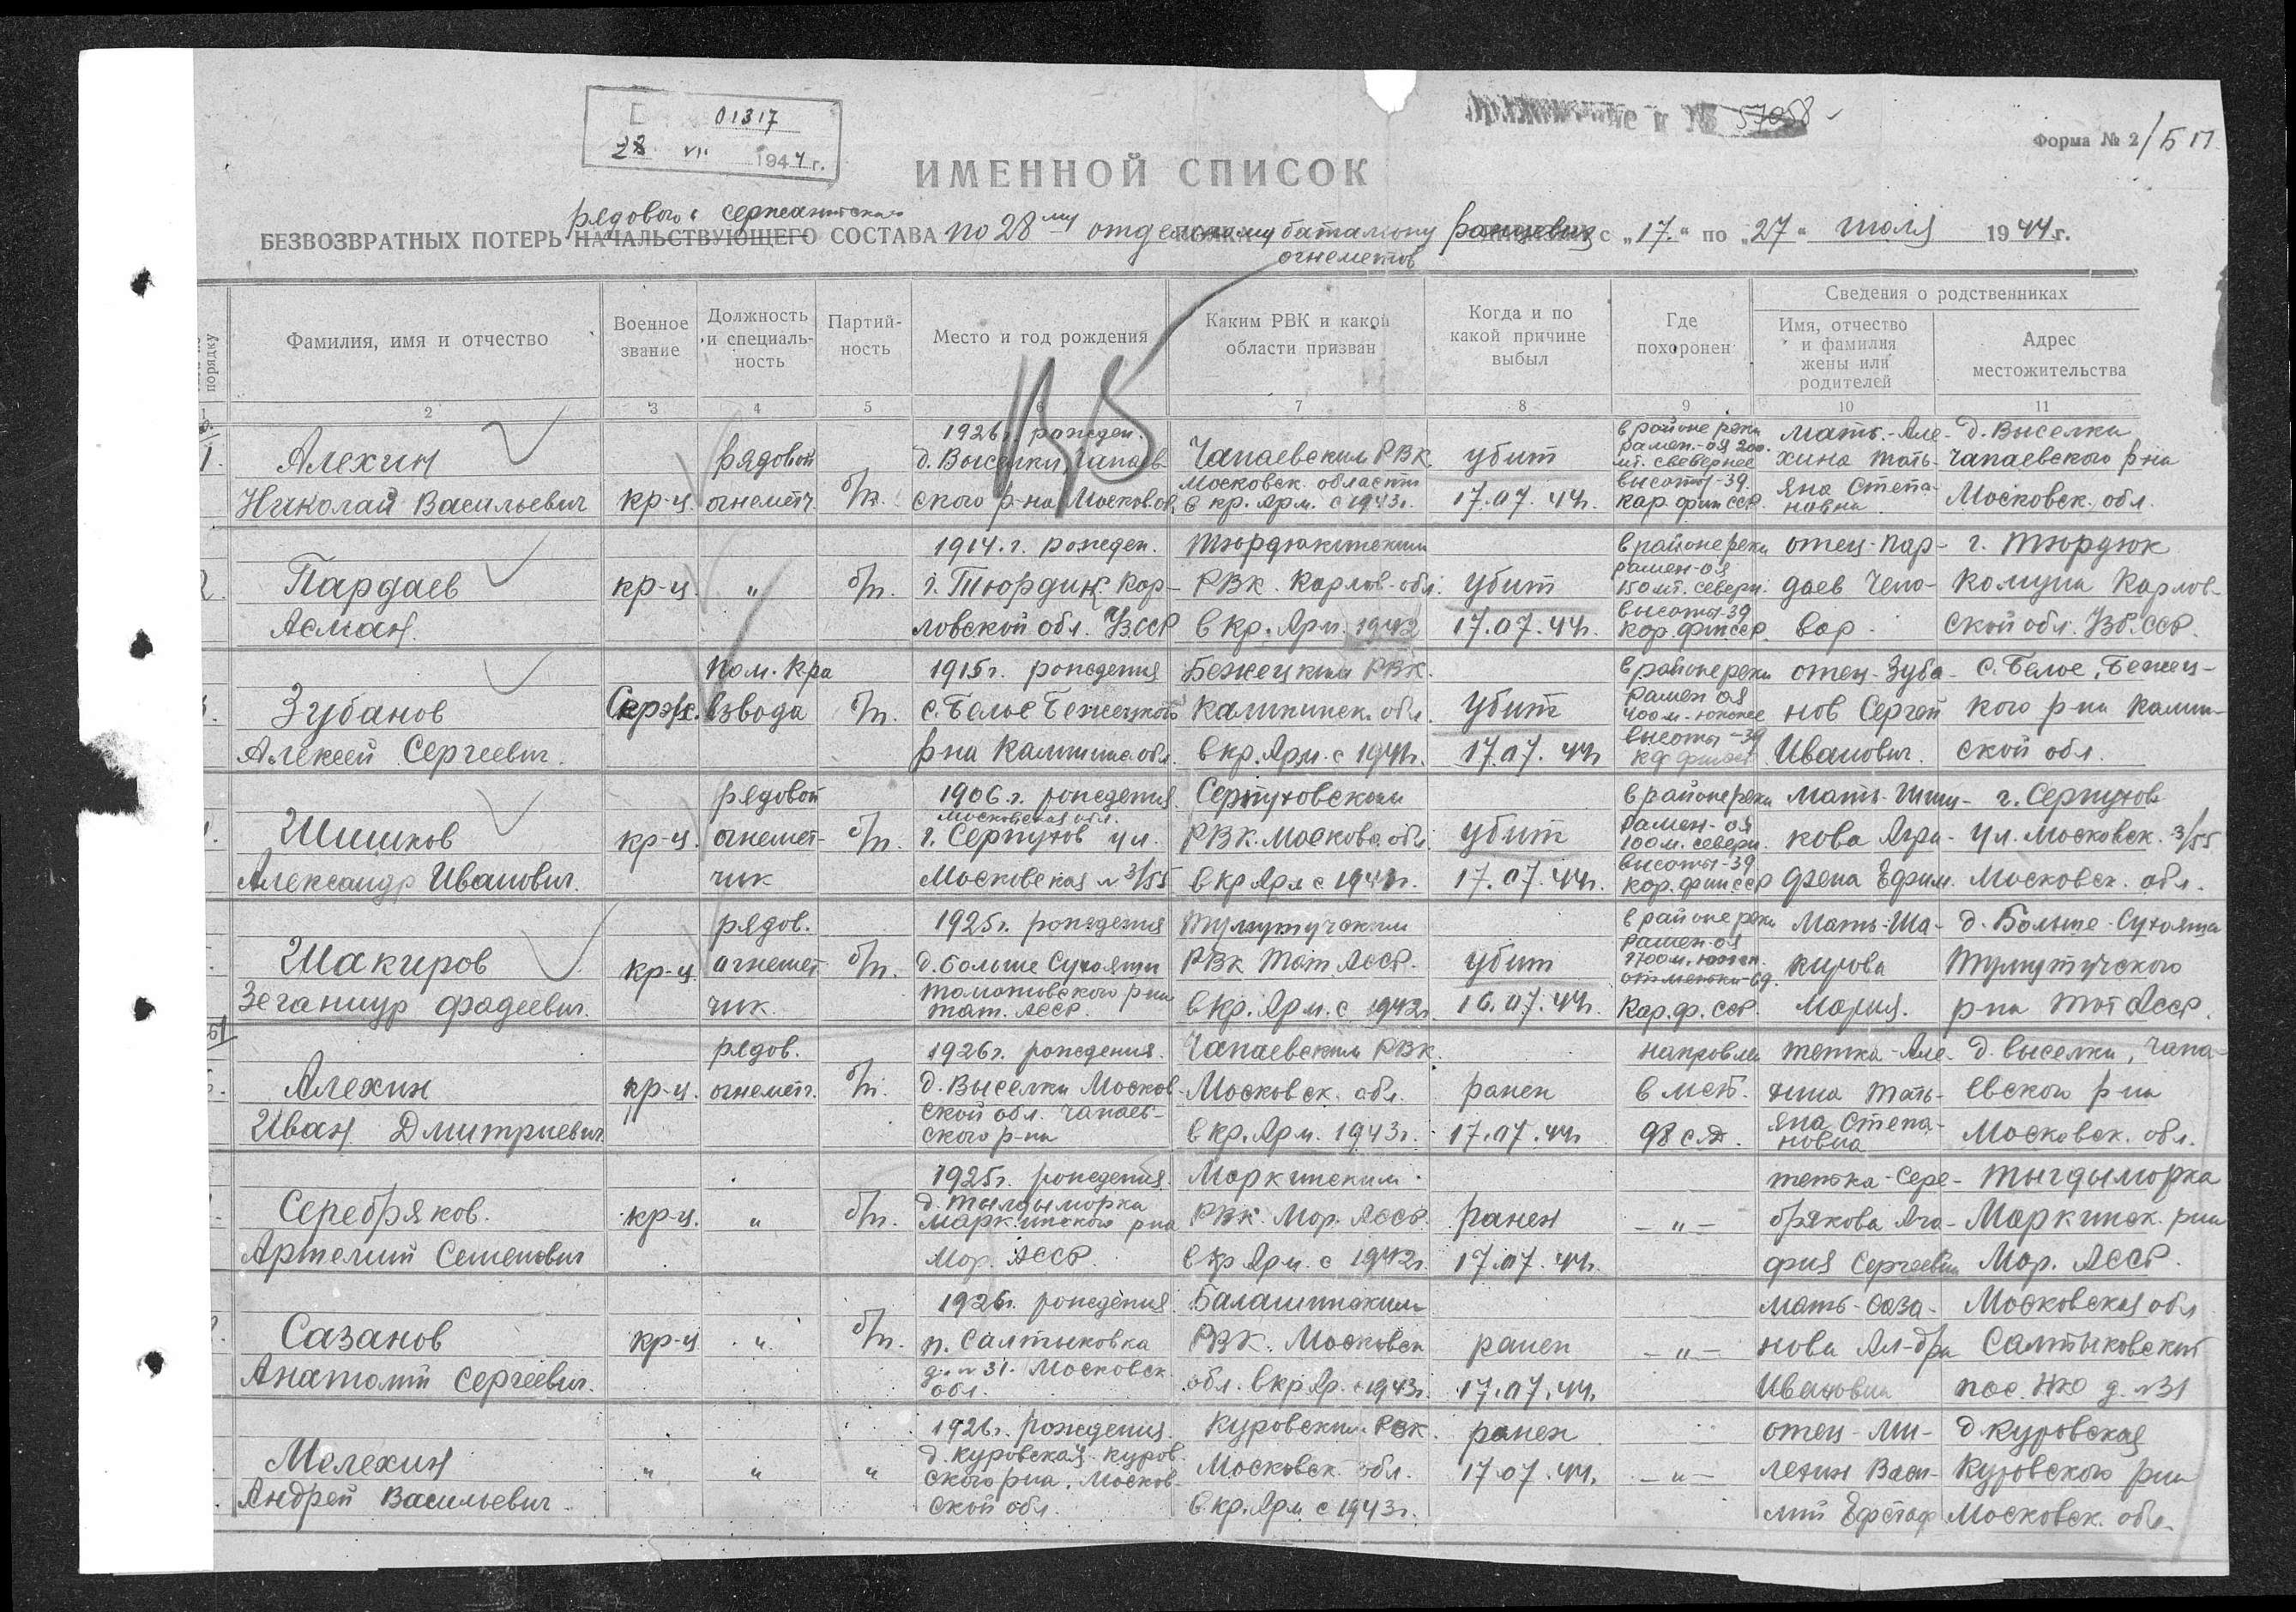 01317
28 VII 1944 г.
Приложение к № 57058
Форма № 2/БП
ИМЕННОЙ СПИСОК
рядового и сержантского
БЕЗВОЗВРАТНЫХ ПОТЕРЬ НАЧАЛЬСТВУЮЩЕГО СОСТАВА по 28му отдельному батальону ранцевых с „17“ по „27“ июля 1944 г.
огнеметов
порядку
Фамилия, имя и отчество
Военное звание
Должность и специальность
Партийность
Место и год рождения
Каким РВК и какой области призван
Когда и по какой причине выбыл
Где похоронен
Сведения о родственниках
Имя, отчество и фамилия жены или родителей
Адрес местожительства
1 2 3 4 5 6 7 8 9 10 11
1. Алехин Николай Васильевич
кр-ц.
рядовой огнеметч.
б/п.
1926г. рожден.
д. Выселки, Чапаев-
ского р-на Москов. об.
Чапаевским РВК
Московск. области
в кр. Арм. с 1943г.
убит
17.07.44г.
в районе реки
рамен-оя 200
мт. севернее
высоты-39.
Кар. фин ССР.
мать.-Але-
хина Тать-
яна Степа-
новна
д. Выселки
Чапаевского р-на
Московск. обл.
2. Пардаев
Асман.
кр-ц.
"
б/п.
1914.г. рожден.
г. Тюрдик. Кар-
ловской обл. УзССР
Тюрдюкинским
РВК. Карлов-обл.
в Кр. Арм. 1942
убит
17.07.44г.
в районе реки
рамен-оя
150 мт. северн.
высоты-39
Кар. Фин ССР.
отец-Пар-
даев Чело-
вар
г. Тюрдюк
Колциа Карлов-
ской обл. Узб. ССР.
3. Зубанов
Алексей Сергеевич.
Серж.
Пом. К-ра
взвода
б/п.
1915г. рождения
с. Белое Бежецкого
р-на Калинин. обл.
Бежецким РВК.
Калининск. обл.
в кр. Арм. с 1941г.
убит
17.07.44г.
в районе реки
рамен оя
400 м. южнее
высоты-39
отец-Зуба-
нов Сергей
Иванович.
с. Белое, Бежец-
кого р-на Калин-
ской обл.
Шишков
Александр Иванович.
кр-ц.
рядовой
огнемет-
чик
б/п.
1906.г. рождения
Московская обл.
г. Серпухов ул.
Московская № 3/55
Серпуховским
РВК. Московс. обл.
в кр Арм с 1941г.
убит
17.07.44г.
в районе реки
рамен-оя
100 м. северн.
высоты-39
Кар. фин ССР
мать-Шиш-
кова Агри-
фена Ефим.
г. Серпухов
ул. Московск. 3/55
Московск. обл.
Шакиров
Зеганнур Фадеевич.
кр-ц.
рядов.
огнемет
чик
б/п.
1925г. рождения
д. Больше Сухояши
р-на
Тат. АССР.
РВК Тат АССР.
в кр. Арм. с 1942г.
убит
16.07.44г.
в районе реки
рамен-оя
отметки-69.
Кар. ф. ССР.
Мать-Ша-
кирова
Мария.
д. Больше-Сухояши
р-на Тат АССР.
Алехин
Иван Дмитриевич
кр-ц.
рядов.
огнеметч.
б/п.
1926г. рождения.
д. Выселки Москов-
ской обл. Чапаев-
ского р-на
Чапаевским РВК.
Московск. обл.
в кр. Арм. 1943г.
ранен
17.07.44г.
направлен
в мсб.
98 с.д.
тетка-Але-
хина Тать-
яна Степа-
новна
д. Выселки, Чапа-
евского р-на
Московск. обл.
Серебряков.
Артемий Семенович
кр-ц.
"
б/п.
1925г. рождения.
д. Тыгдыморка
Маркинского р-на
Мар. АССР.
Моркинским
РВК. Мар. АССР.
в кр Арм. с 1942г.
ранен
17.07.44г.
— " —
тетка-Сере-
брякова Ага-
фия Сергеевн
Тыгдыморка
Моркинск. р-на
Мар. АССР.
Сазанов
Анатолий Сергеевич.
кр-ц
"
б/п.
1926г. рождения
п. Салтыковка
д. № 31. Московск
обл.
Балашинским
РВК. Московск
обл. в кр. Ар. с 1943г.
ранен
17.07.44.
— " —
мать-Саза-
нова Ал-дра
Ивановна
Московская обл
Салтыковский
пос. НКО д. № 31
Мелехин
Андрей Васильевич.
"
"
"
1926г. рождения.
д. Куровская. Куров-
ского р-на. Москов-
ской обл.
Куровским. РВК.
Московск. обл.
в кр. Арм с 1943г.
ранен
17.07.44.
— " —
отец-Ми-
лехин Васи-
лий Ефстаф
д Куровская
Куровского р-на
Московск. обл.